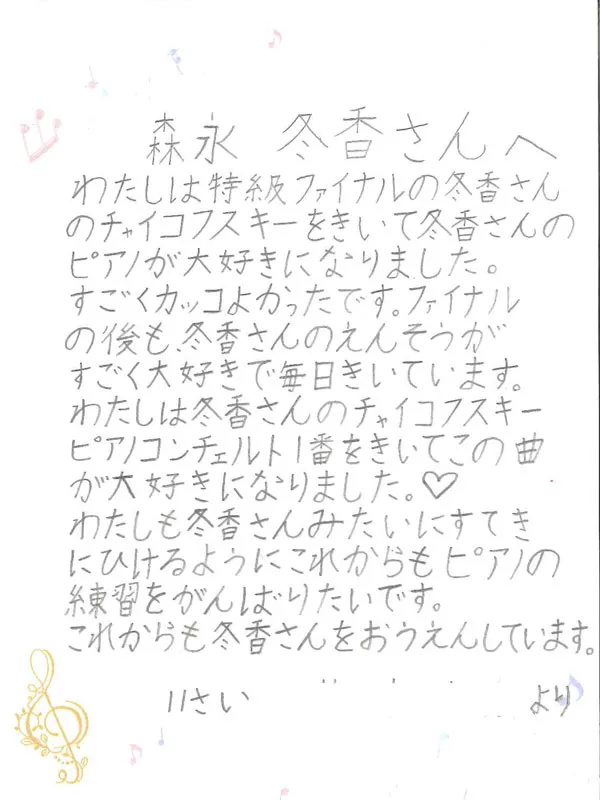 森永 冬香さんへ
わたしは特級ファイナルの冬香さん
のチャイコフスキーをきいて冬香さんの
ピアノが大好きになりました。
すごくカッコよかったです。ファイナル
の後も、冬香さんのえんそうが
すごく大好きで毎日きいています。
わたしは冬香さんのチャイコフスキー
ピアノコンチェルト1番をきいてこの曲
が大好きになりました。♡
わたしも冬香さんみたいにすてき
にひけるようにこれからもピアノの
練習をがんばりたいです。
これからも冬香さんをおうえんしています。
11さい より